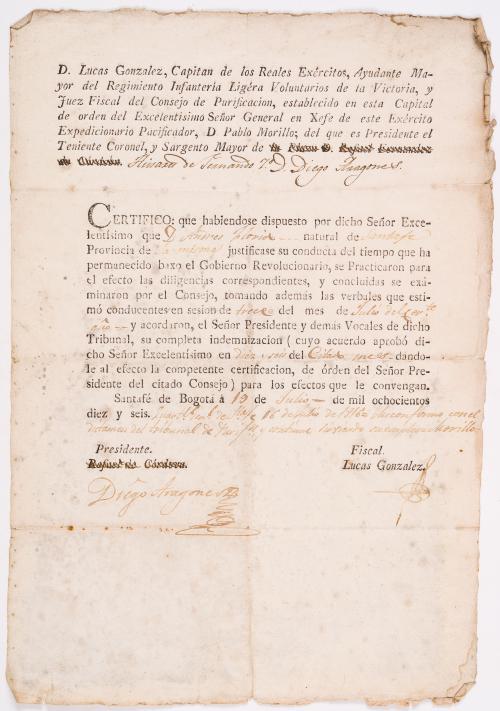 D. Lucas Gonzalez, Capitan de los Reales Exércitos, Ayudante Ma-
yor del Regimiento Infantería Ligéra Voluntarios de la Victoria, y
Juez Fiscal del Consejo de Purificacion, establecido en esta Capital
de orden del Excelentísimo Señor General en Xefe de este Exército
Expedicionario Pacificador, D Pablo Morillo, del que es Presidente el
Teniente Coronel, y Sargento Mayor de
de Fernando 7º D. Diego Aragones.
CERTIFICO: que habiendose dispuesto por dicho Señor Exce-
lentísimo que D Andres natural de Santafe
Provincia de justificase su conducta del tiempo que ha
permanecido baxo el Gobierno Revolucionario, se Practicaron para
el efecto las diligencias correspondientes, y concluidas se exâ-
minaron por el Consejo, tomando además las verbales que esti-
mó conducentes en sesion de trece del mes de Julio del corte
año y acordaron, el Señor Presidente y demás Vocales de dicho
Tribunal, su completa indemnizacion (cuyo acuerdo aprobó di-
cho Señor Excelentísimo en diez y seis del Citdo mes dando-
le al efecto la competente certificacion, de órden del Señor Pre-
sidente del citado Consejo) para los efectos que le convengan.
Santafé de Bogotá á 19 de Julio de mil ochocientos
diez y seis.
16 de Julio de 1816 Me conformo con el
dictamen del tribunal de Morillo
Presidente. Fiscal.
Rafael de Córdova. Lucas Gonzalez.
Diego Aragones